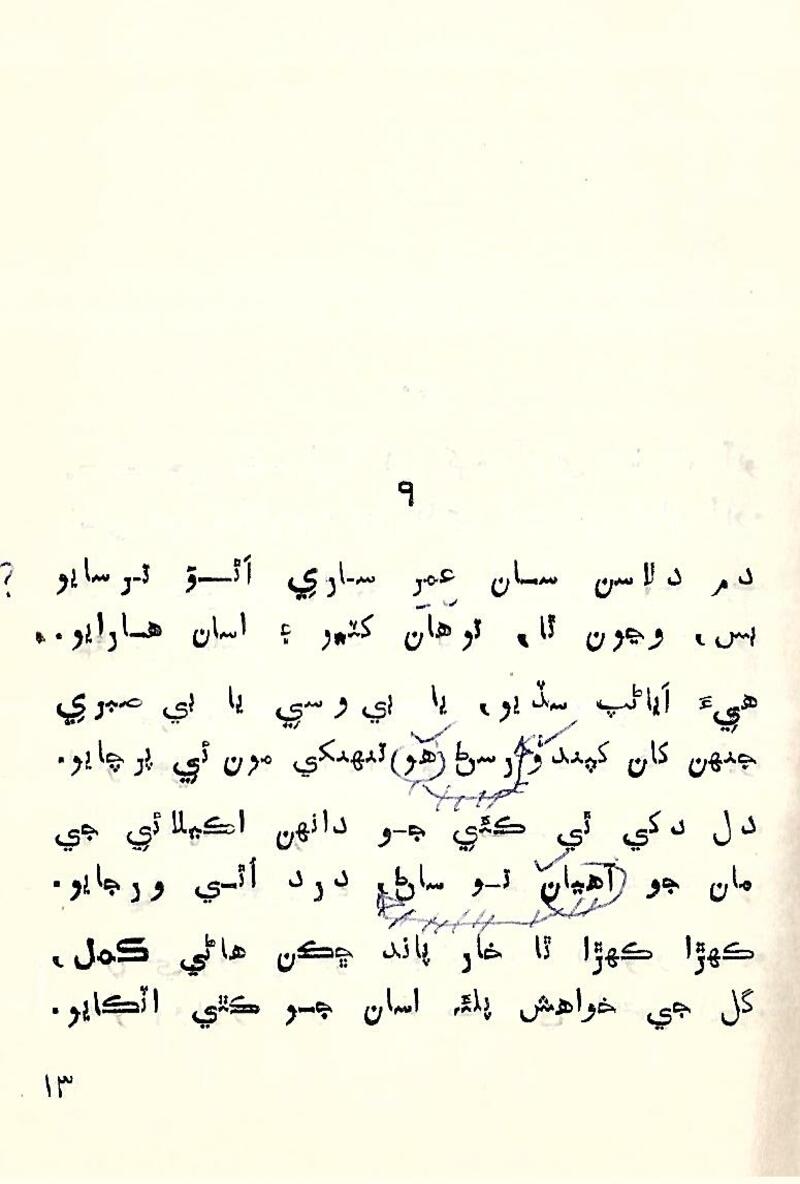 ۹
دم دلاسن سان عمر ساري اَٿوَ ترسايو ?
بس، وڃون ٿا، توهان کٽيو ۽ اسان هارايو..
هيءَ اَياڻپ سڏيو، يا بي وسي يا بي صبري
جنهن کان کپندو رسڻ (هو) تنهنکي مون ئي پرچايو.
دل دکي ٿي ڪٿي جو دانهن اڪيلائي جي
مان جو آهيان تو ساڻ، درد اَٿي ورڇايو.
ڪهڙا ڪهڙا ٿا خار پاند ڇڪن هاڻي ڪمل،
گل جي خواهش پلئہ اسان جو ڪٿي اٽڪايو.
۱۳